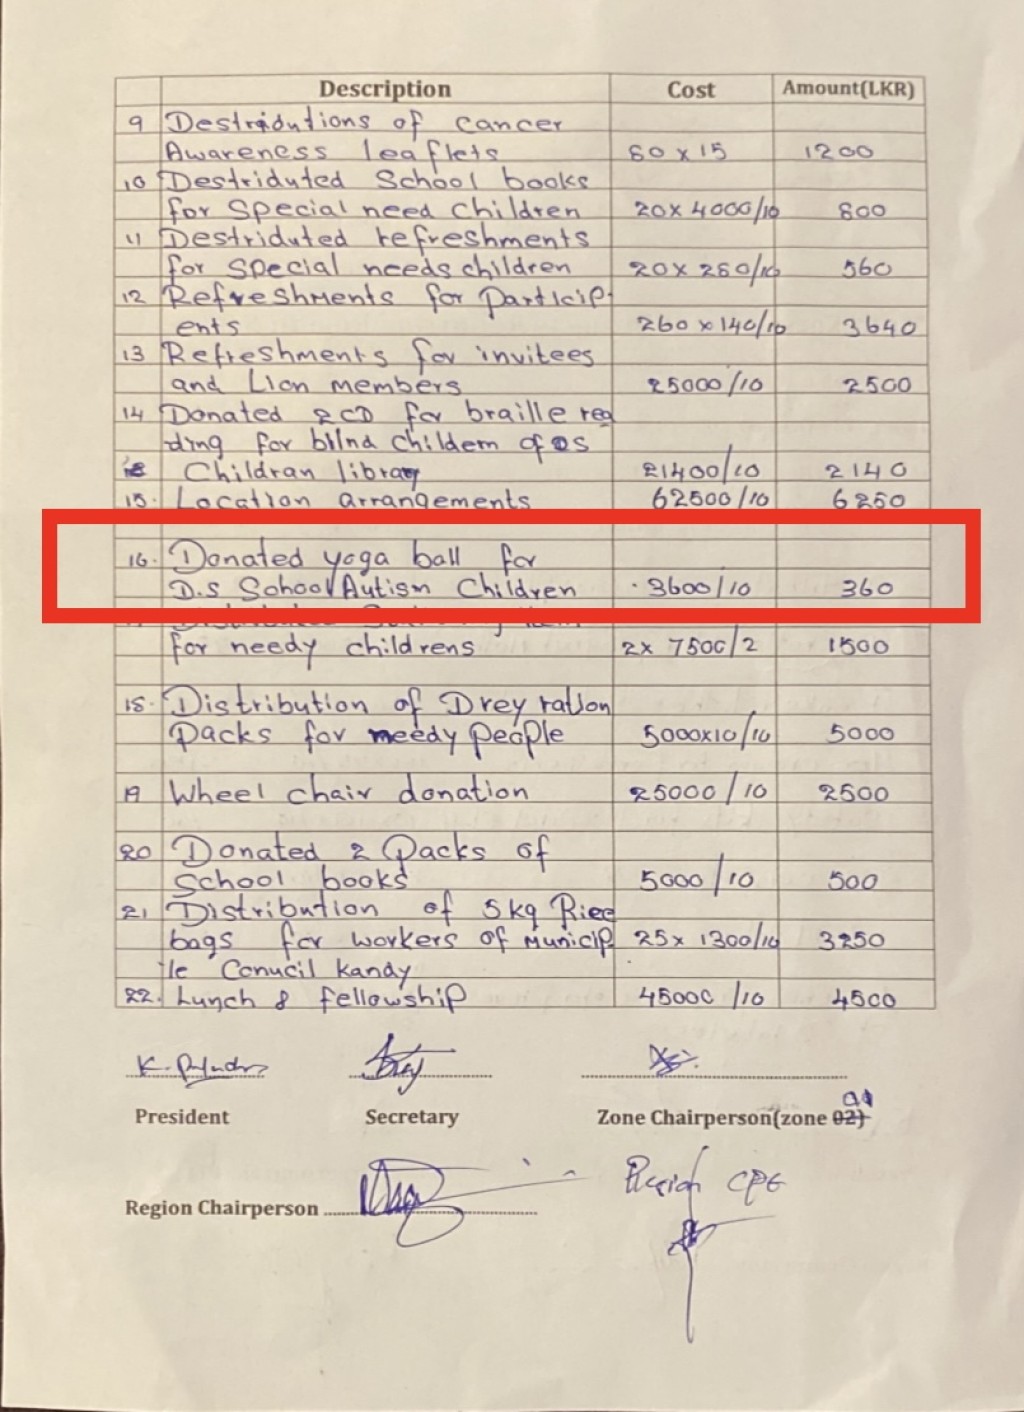 Description Cost Amount(LKR)
9 Destridutions of cancer
Awareness leaflets 80 x 15 1200
10 Destriduted School books
for special need children 20x 4000/10 800
11 Destriduted refreshments
for special needs children 20x 280/10 560
12 Refreshments for particip-
ents 260 x 140/10 3640
13 Refreshments for invitees
and Lion members 25000/10 2500
14 Donated 2 CD for braille rea
ding for bilnd childern of DS
Childran library 21400/10 2140
15. Location arrangements 62500/10 6250
16. Donated yoga ball for
D.S School Autism Children 3600/10 360
for needy childrens 2x 7500/2 1500
18. Distribution of Drey ration
packs for needy people 5000x10/10 5000
19 Wheel chair donation 25000/10 2500
20 Donated 2 Packs of
School books 5000/10 500
21 Distribution of 5kg Rice
bags for workers of Municip 25x 1300/10 3250
le Conucil kandy
22. Lunch & fellowship 45000 /10 4500
President Secretary Zone Chairperson(zone 02)
Region Chairperson
Region CPE